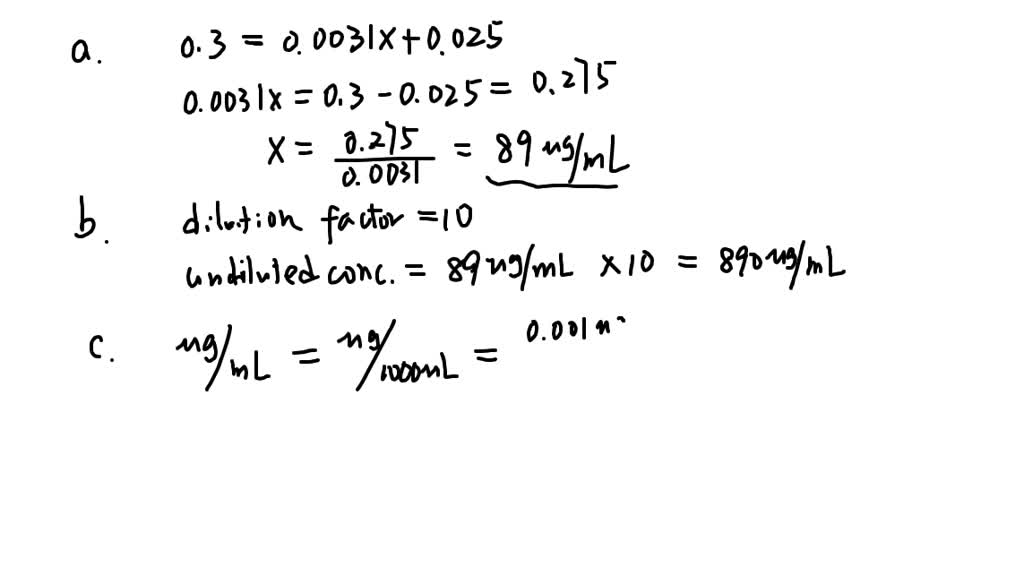 a. 0.3 = 0.0031x + 0.025
0.0031x = 0.3 - 0.025 = 0.275
x = 0.275/0.0031 = 89 ng/mL
b. dilution factor = 10
undiluted conc. = 89 ng/mL × 10 = 890 ng/mL
c. ng/mL = ng/1000nL = 0.001 n